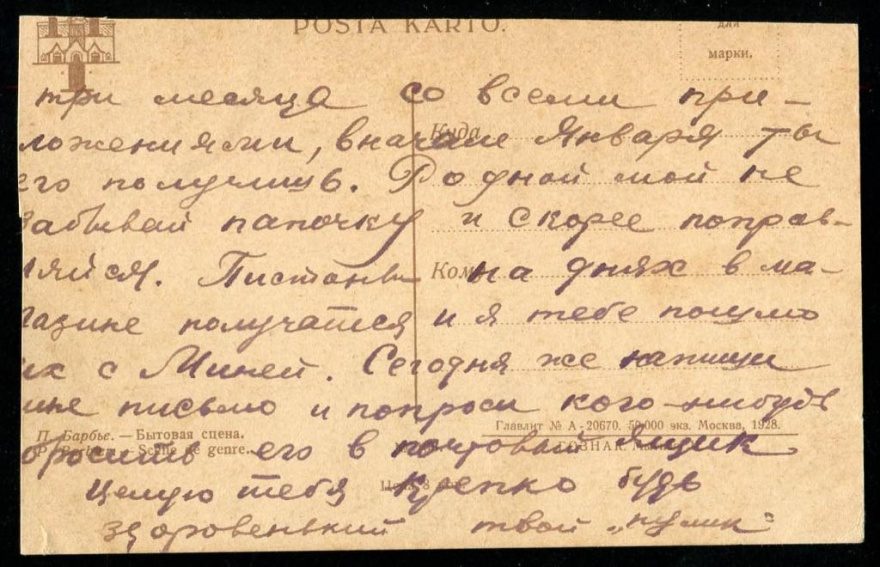 POSTA KARTO.
для
марки.
три месяца со всеми при-
ложениями, вначале Января ты
его получишь. Родной мой не
забывай папочку и скорее поправ-
ляйся. Пистоны на днях в ма-
газине получатся и я тебе пошлю
их с Миней. Сегодня же напиши
мне письмо и попроси кого-нибудь
бросить его в почтовый ящик
Целую тебя крепко будь
здоровенький твой
Куда
Кому
П. Барбье. — Бытовая сцена.
P. Barbier. — Scène de genre.
Главлит № А - 20670. 50.000 экз. Москва, 1928.
ГОЗНАК.
Цена